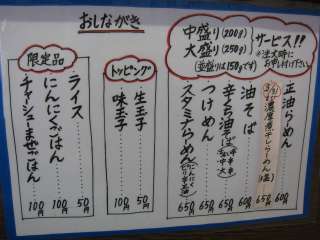 おしながき
中盛り(200g)
大盛り(250g)
(並盛りは150gです)
サービス!!
※注文時に
お申し付け下さい
正油らーめん 600円
油そば 600円
辛くち油そば 650円
つけめん 650円
スタミナらーめん 650円
トッピング
生玉子 100円
味玉子 100円
限定品
ライス 50円
にんにくごはん 100円
チャーシューまぜごはん 100円